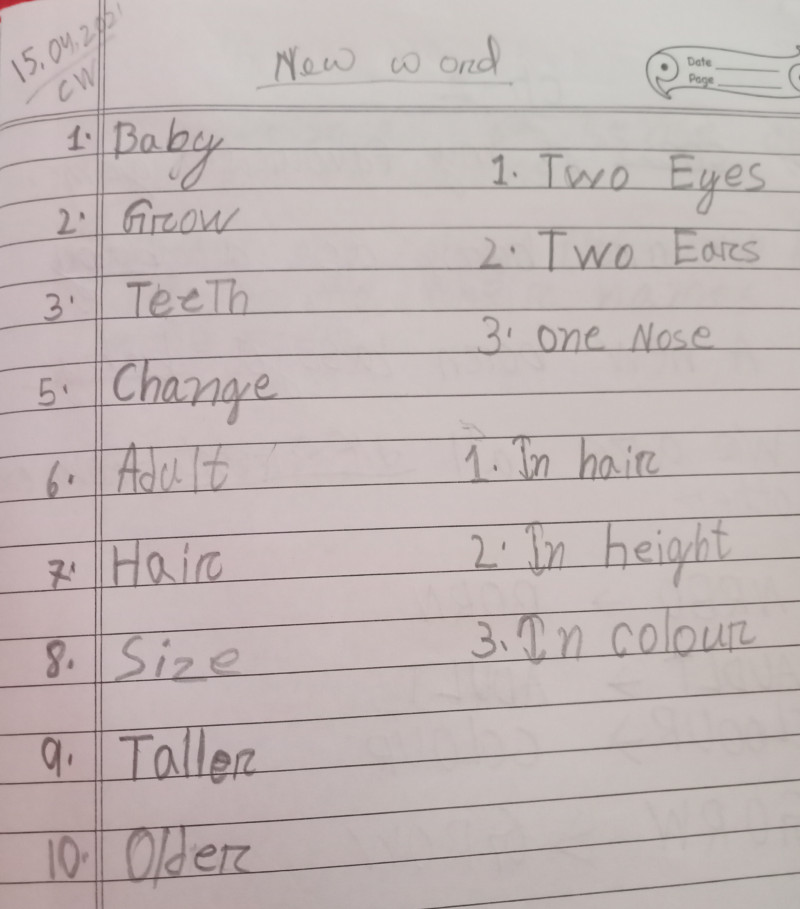 15.04.2021
CW
New word
Date
Page
1. Baby
2. Grow
3. TeeTh
5. Change
6. Adult
7. Hair
8. Size
9. Taller
10. Older
1. Two Eyes
2. Two Ears
3. one Nose
1. In hair
2. In height
3. In colour